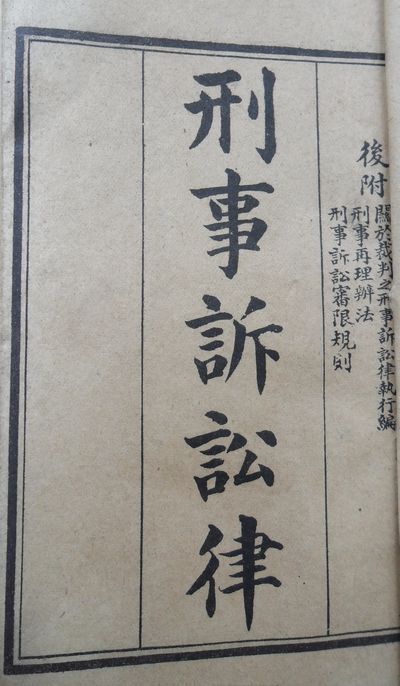 後附
關於裁判之刑事訴訟律執行編
刑事再理辦法
刑事訴訟審限規則
刑事訴訟律